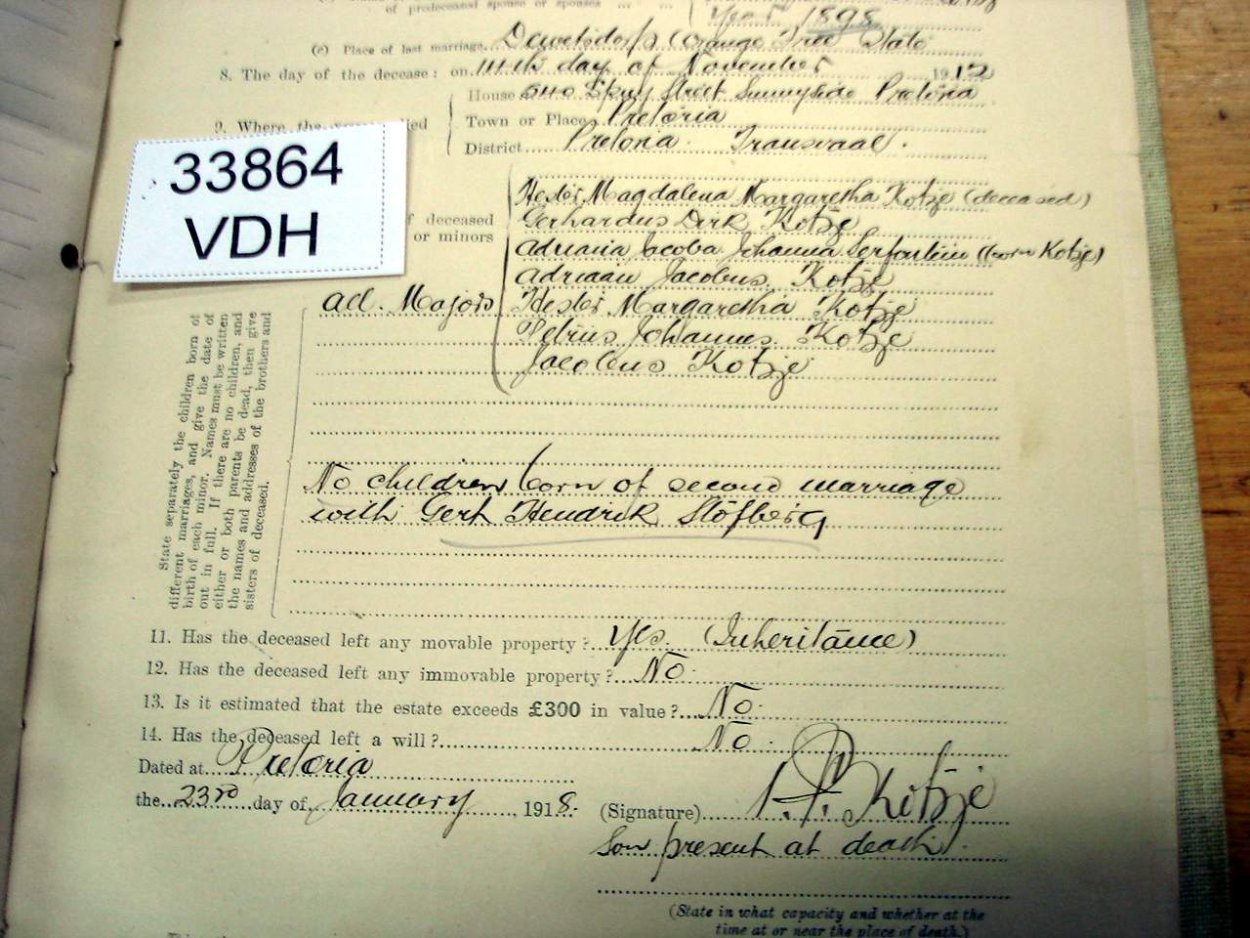 of predeceased spouse or spouses ... ...
Year 1898
(c) Place of last marriage, Dewetsdorp (Orange Free State
8. The day of the decease: on 11th day of November 1912
House Street Sunnyside Pretoria
9. Where the died
Town or Place Pretoria
District Pretoria Transvaal.
33864
VDH
of deceased
or minors
Hester Magdalena Margaretha Kotzé (deceased)
Gerhardus Dirk Kotzé
Adriana Jacoba Johanna Serfontein (born Kotzé)
Adriaan Jacobus Kotzé
all Majors Hester Margaretha Kotzé
Petrus Johannes Kotzé
Jacobus Kotzé
State separately the children born of
different marriages, and give the date of
birth of each minor. Names must be written
out in full. If there are no children, and
either or both parents be dead, then give
the names and addresses of the brothers and
sisters of deceased.
No children born of second marriage
with Gert Hendrik Stofberg
11. Has the deceased left any movable property? Yes. (Inheritance)
12. Has the deceased left any immovable property? No.
13. Is it estimated that the estate exceeds £300 in value? No.
14. Has the deceased left a will? No.
Dated at Pretoria
the 23rd day of January, 1918.
(Signature) Kotzé
Son present at death.
(State in what capacity and whether at the
time at or near the place of death.)